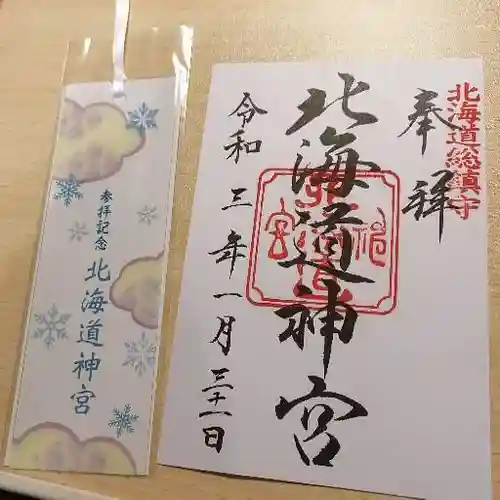 北海道総鎮守
奉拝
北海道神宮
令和三年一月三十一日
参拝記念
北海道神宮